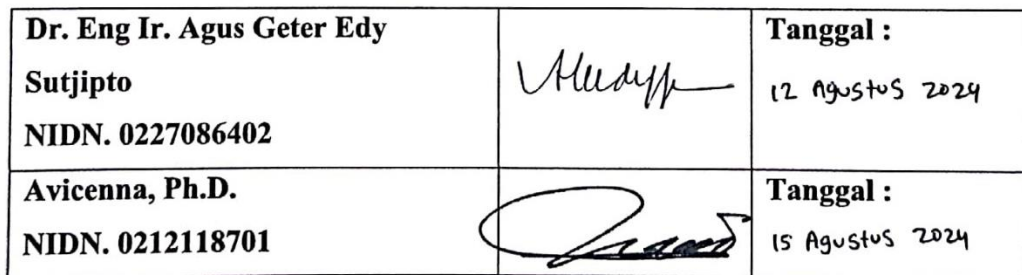 Dr. Eng Ir. Agus Geter Edy
Sutjipto
NIDN. 0227086402
Tanggal :
12 Agustus 2024
Avicenna, Ph.D.
NIDN. 0212118701
Tanggal :
15 Agustus 2024